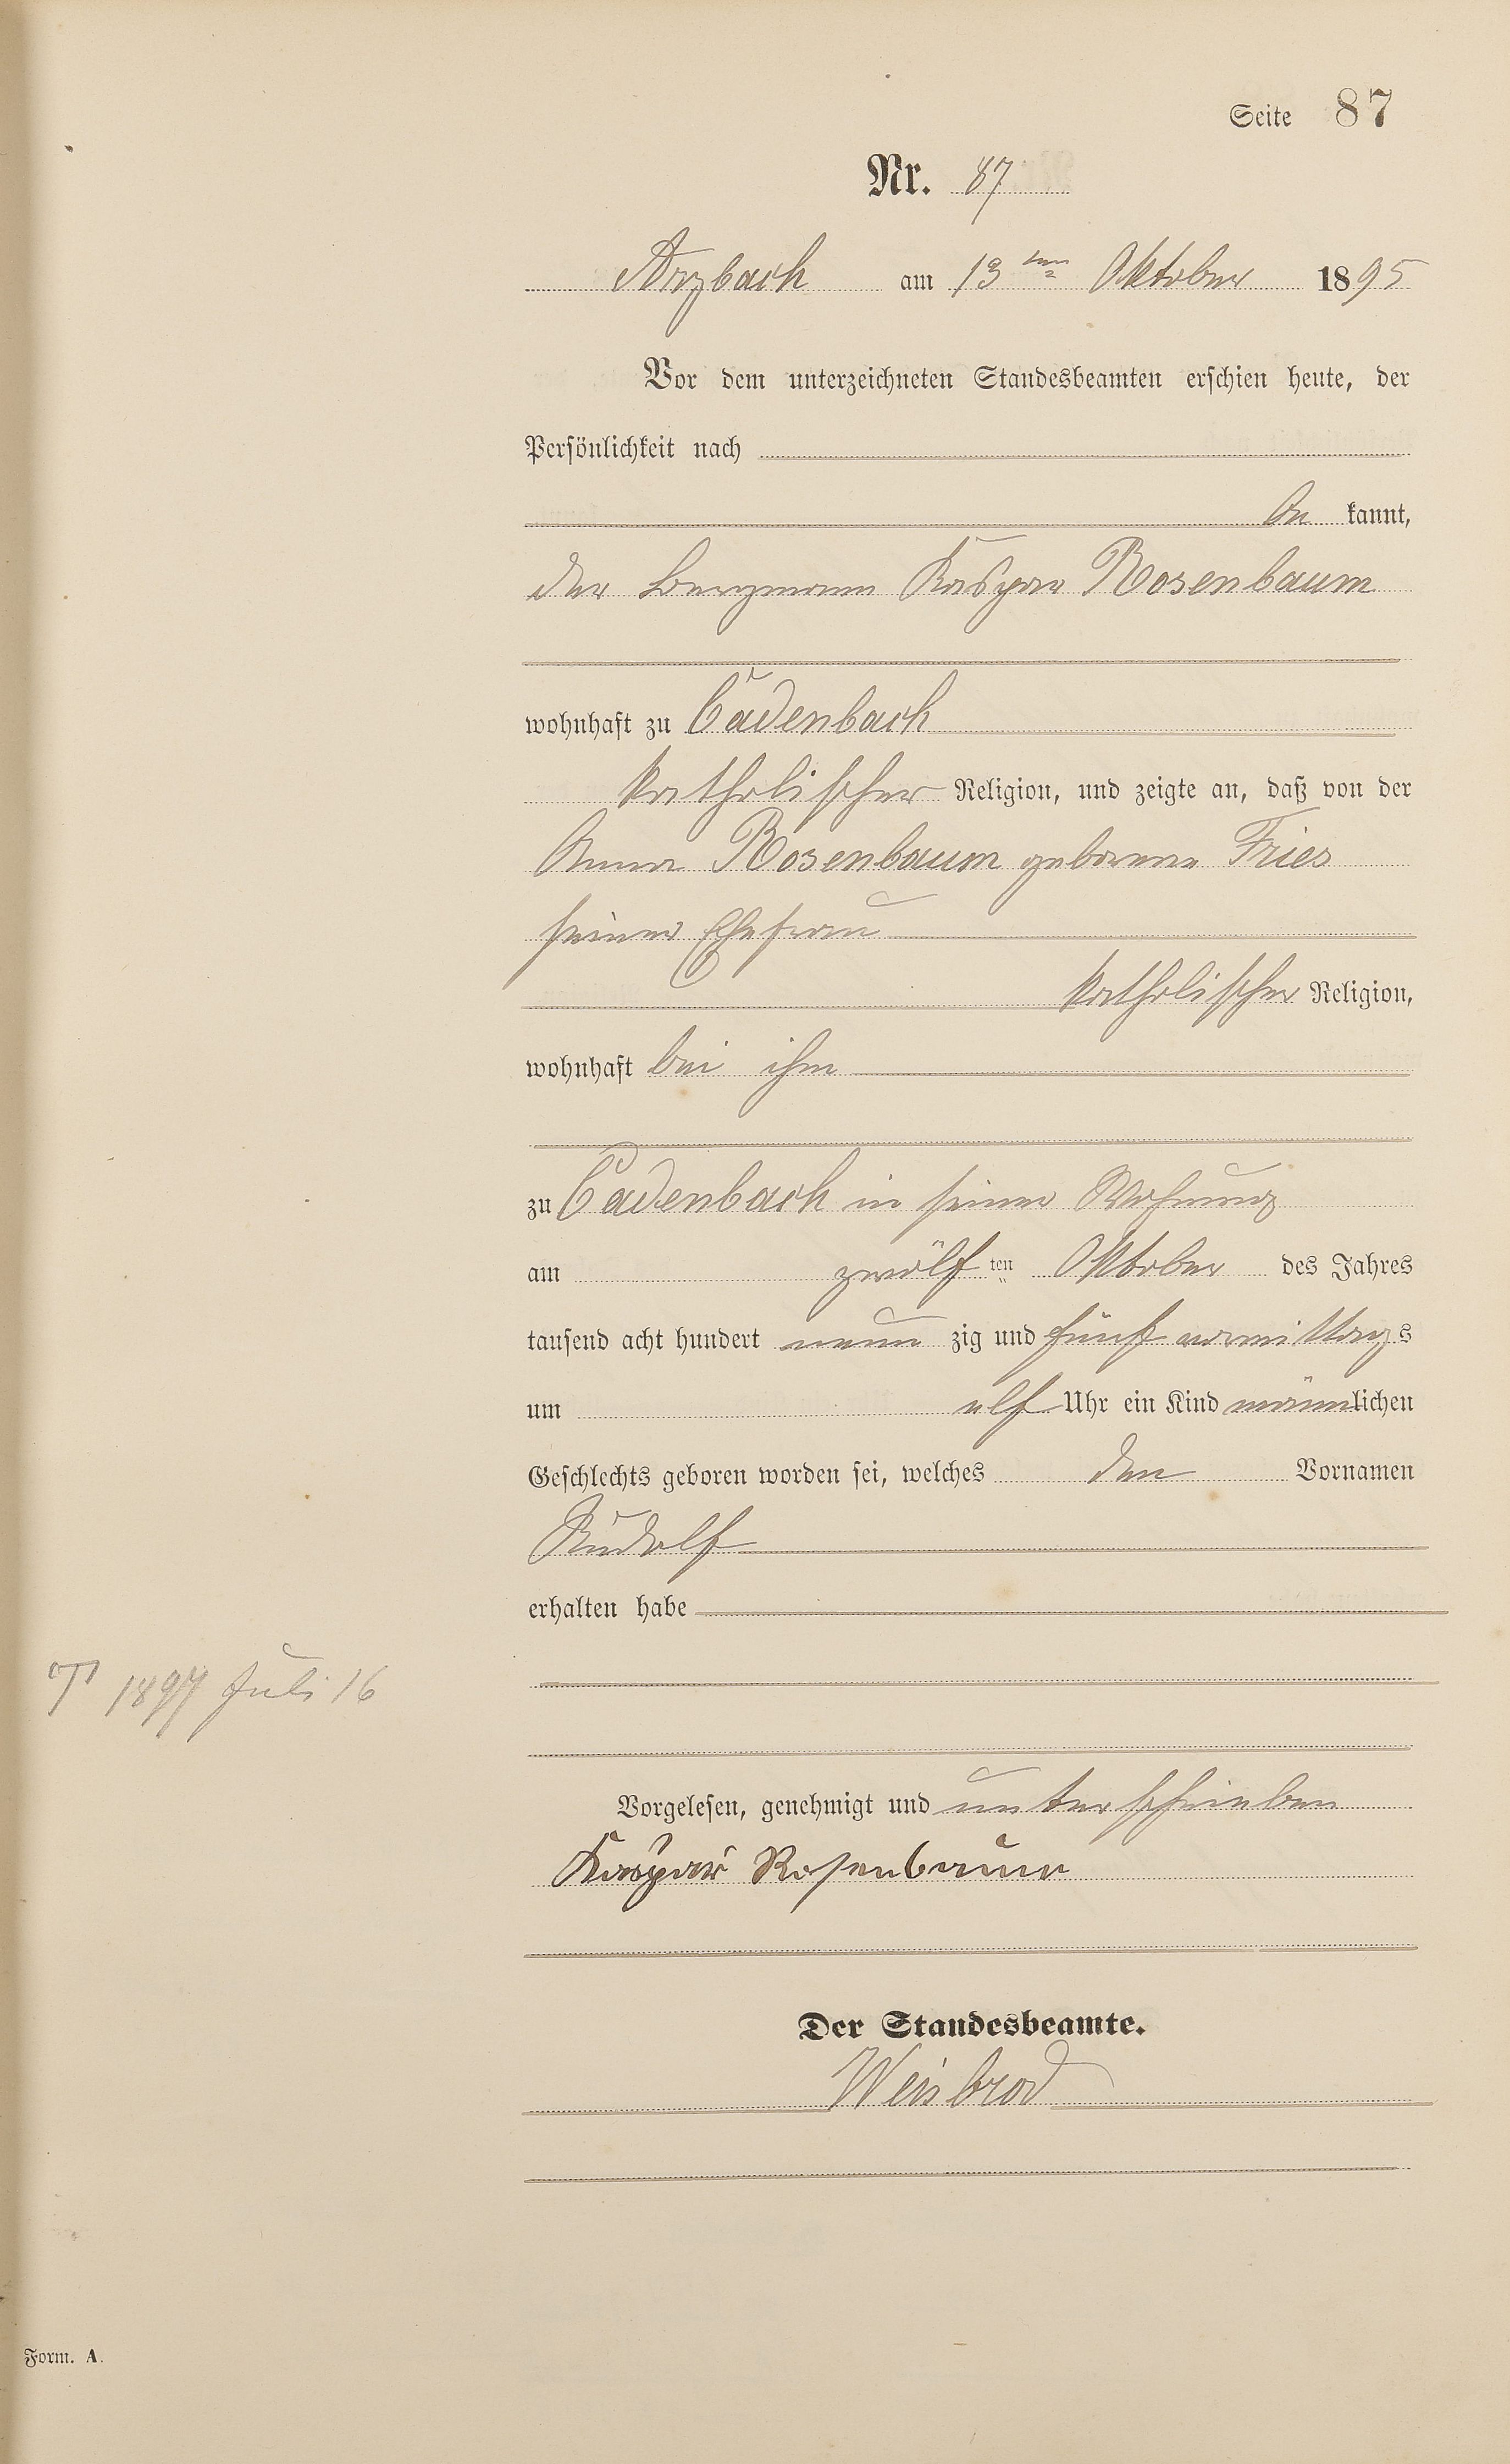 Seite 87
Nr. 87
Arzbach am 13ten Oktober 1895
Vor dem unterzeichneten Standesbeamten erschien heute, der
Persönlichkeit nach
be kannt,
der Bergmann Kaspar Rosenbaum
wohnhaft zu Cadenbach
katholischer Religion, und zeigte an, daß von der
Anna Rosenbaum geborene Fries
seiner Ehefrau
katholischer Religion,
wohnhaft bei ihm
zu Cadenbach in seiner Wohnung
am zwölf ten Oktober des Jahres
tausend acht hundert neun zig und fünf vormittags
um elf Uhr ein Kind männlichen
Geschlechts geboren worden sei, welches den Vornamen
Rudolf
erhalten habe
T 1897 Juli 16
Vorgelesen, genehmigt und unterschrieben
Kaspar Rosenbaum
Der Standesbeamte.
Weisbrod
Form. A.